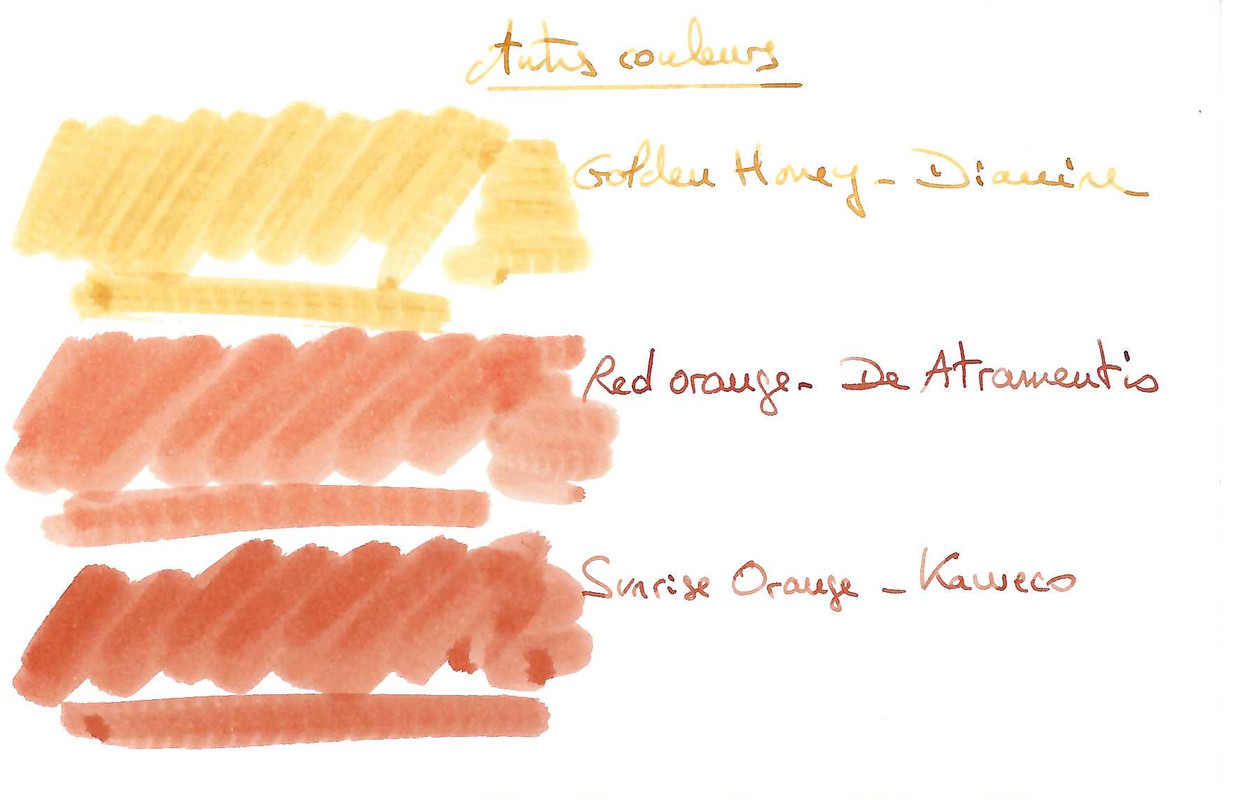 Autres couleurs
Golden Honey - Diamine
Red orange - De Atramentis
Sunrise Orange - Kaweco